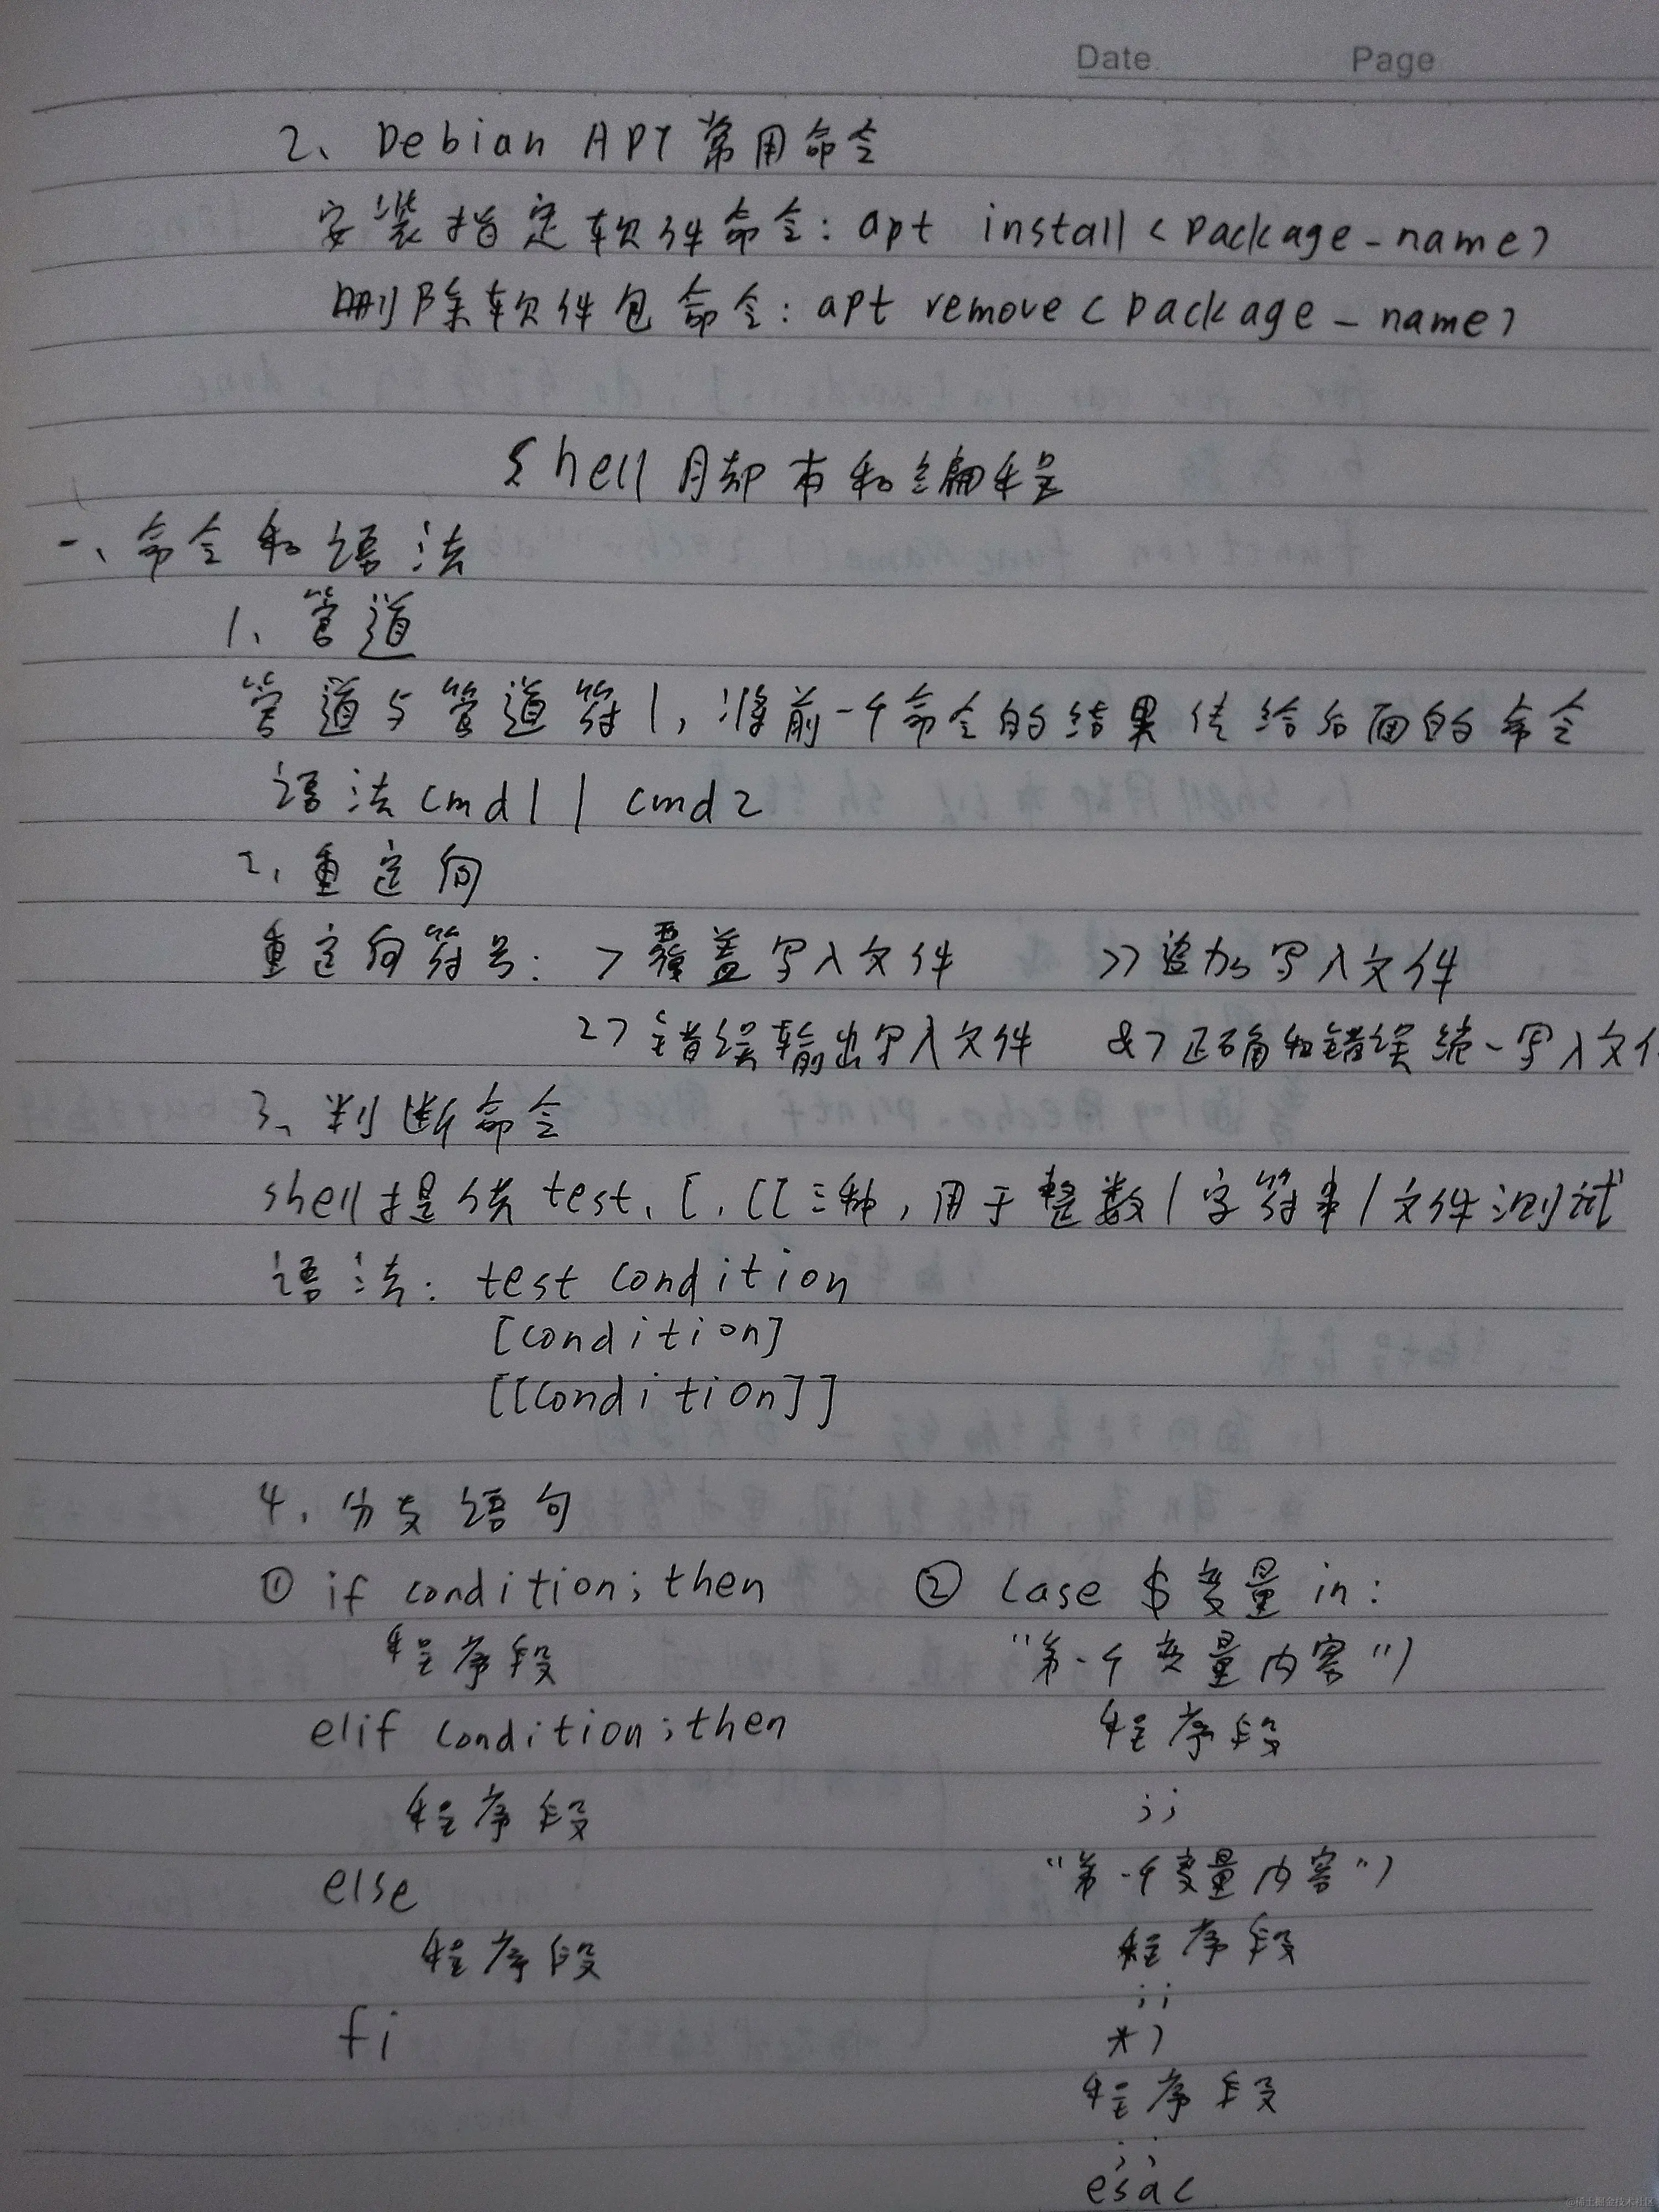 Date Page
2、Debian APT 常用命令
安装指定软件命令: apt install <package-name>
删除软件包命令: apt remove <package-name>
Shell 脚本和编程
一、命令和语法
1、管道
管道与管道符 |, 将前一个命令的结果传给后面的命令
语法 cmd1 | cmd2
2、重定向
重定向符号: > 覆盖写入文件 >> 追加写入文件
2> 错误输出写入文件 &> 正确和错误统一写入文件
3、判断命令
shell提供 test、[、[[ 三种, 用于整数/字符串/文件测试
语法: test condition
[condition]
[[condition]]
4、分支语句
① if condition; then ② case $变量 in:
程序段 "第一个变量内容")
elif condition; then 程序段
程序段 ;;
else "第一个变量内容")
程序段 程序段
;;
fi *)
程序段
;;
esac
@稀土掘金技术社区